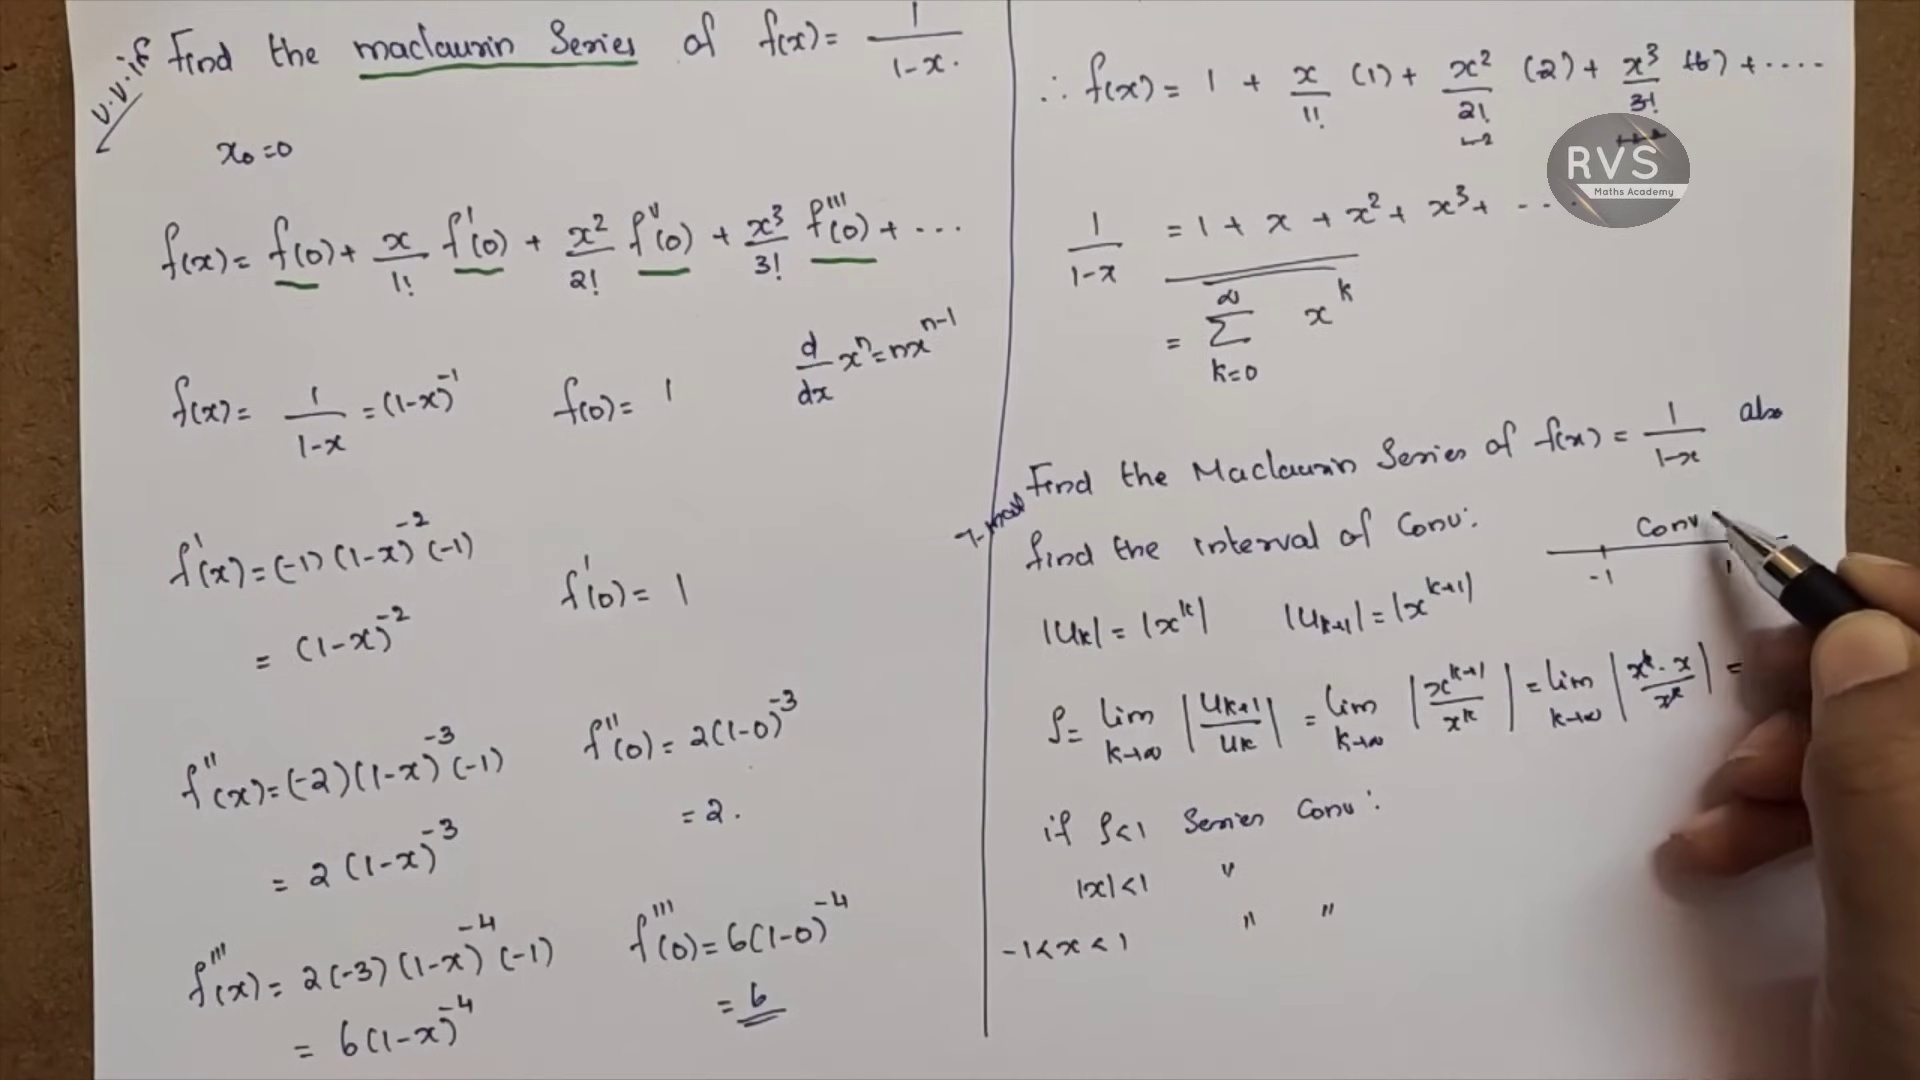 v.v.if Find the maclaurin Series of f(x) = 1/(1-x).
x₀=0
f(x) = f(0) + x/1! f'(0) + x²/2! f''(0) + x³/3! f'''(0) + ...
d/dx xⁿ = nxⁿ⁻¹
f(x) = 1/(1-x) = (1-x)⁻¹ f(0) = 1
f'(x) = (-1)(1-x)⁻²(-1)
= (1-x)⁻² f'(0) = 1
f''(x) = (-2)(1-x)⁻³(-1) f''(0) = 2(1-0)⁻³
= 2(1-x)⁻³ = 2.
f'''(x) = 2(-3)(1-x)⁻⁴(-1) f'''(0) = 6(1-0)⁻⁴
= 6(1-x)⁻⁴ = 6
∴ f(x) = 1 + x/1! (1) + x²/2! (2) + x³/3! (6) + ....
RVS
Maths Academy
1/(1-x) = 1 + x + x² + x³ + ...
= ∑_{k=0}^{∞} x^k
Find the Maclaurin Series of f(x) = 1/(1-x) also
find the interval of Conv:
Conv
-1 1
|u_k| = |x^k| |u_{k+1}| = |x^{k+1}|
ρ = lim_{k→∞} |u_{k+1}/u_k| = lim_{k→∞} |x^{k+1}/x^k| = lim_{k→∞} |x^k · x/x^k| =
if ρ<1 Series Conv:
|x|<1 "
-1<x<1 " "